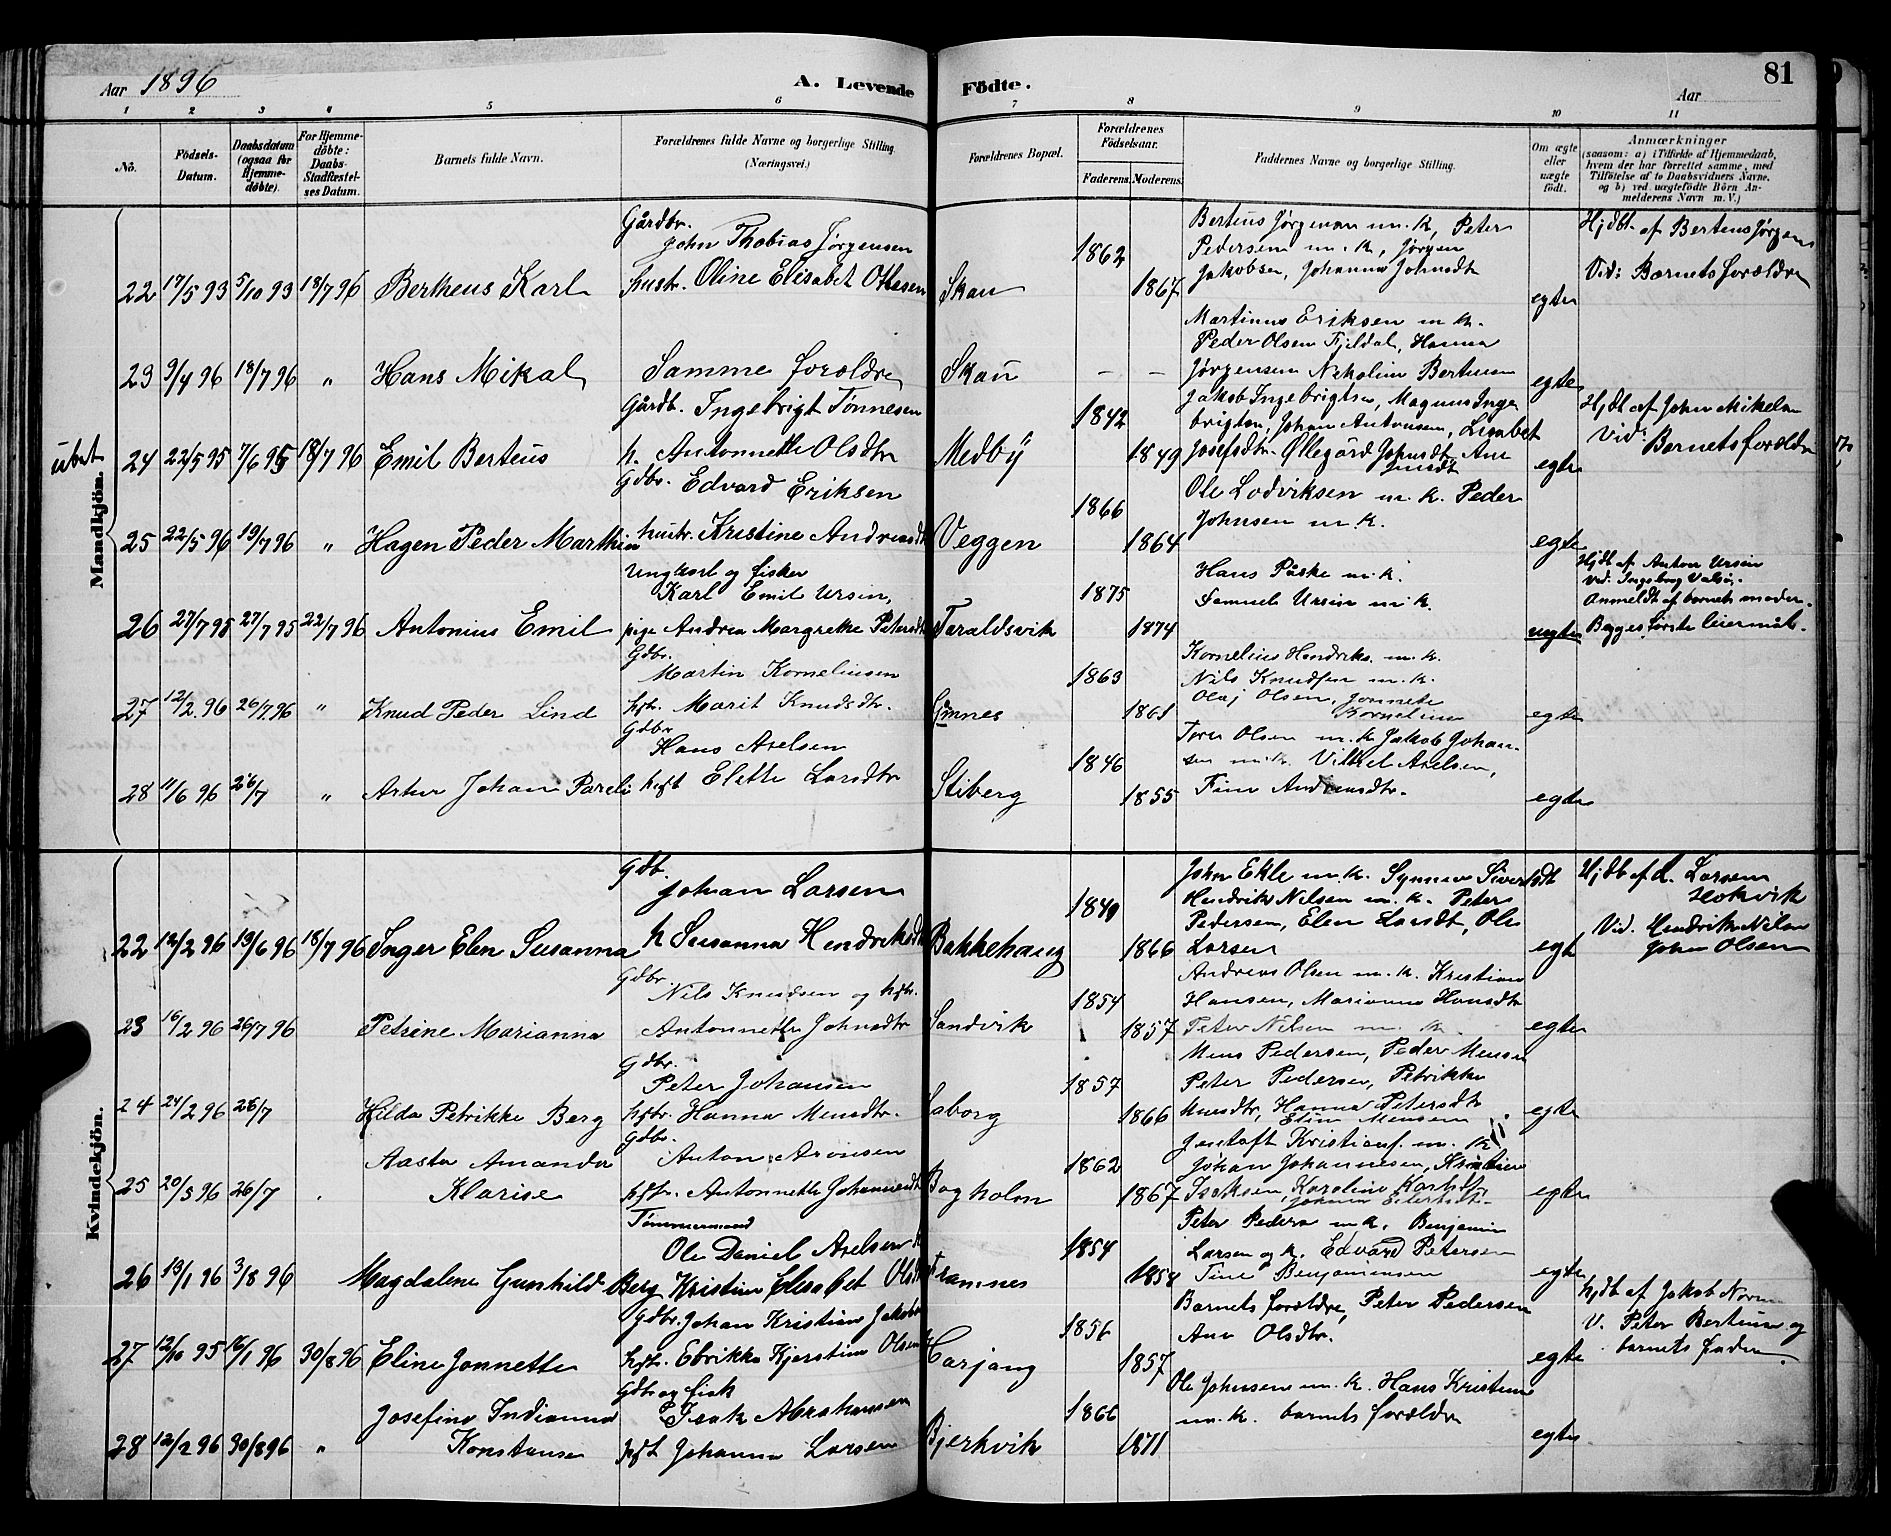 Aar 1896
A. Levende Födte.
81
Aar
1 2 3 4 5 6 7 8 9 10 11
No.
Födsels-Datum.
Daabsdatum (ogsaa for Hjemme-döbte).
For Hjemme-döbte: Daabs-Stadfæstel-ses Datum.
Barnets fulde Navn.
Forældrenes fulde Navne og borgerlige Stilling (Næringsvei.)
Forældrenes Bopæl.
Forældrenes Födselsaar.
Faderens. Moderens.
Faddernes Navne og borgerlige Stilling.
Om ægte eller uægte födt.
Anmærkninger
(saasom: a) i Tilfælde af Hjemmedaab, hvem der har forrettet samme, med Tilföielse af to Daabsvidners Navne, og b) ved uægtefödte Börn An-melderens Navn m. V.)
Mandkjön.
Gårdbr.
John Thobias Jörgensen
22 17/5 93 5/10 93 18/7 96 Bertheus Karl hustr. Oline Elisabet Ottesen Skau 1862 1867
Berteus Jørgensen m. k, Peter
Pedersen m. k, Jørgen
Jakobsen, Johanna Johnsdt
egte
Hjdbt. af Berteus Jørgens
Vid: Barnets forældre
23 9/4 96 18/7 96 " Hans Mikal Samme forældre Skau – –
Martinus Eriksen m k.
Peder Olsen Fjeldal, Hanna
Jørgensen Nikoline Berteusen
egte
Gårdb. Ingebrigt Tönnesen
24 22/5 95 7/6 95 18/7 96 Emil Berteus h. Antonette Olsdtr Medby 1842 1849
Jakob Ingebrigtsen, Magnus Inge
brigtsen, Johan Antonsen, Lisabet
Josefsdtr. Øllegård Johnsdt, Ane
egte
Hjdt af John Mikelsen
Vid: Barnets forældre
Gdbr. Edvard Eriksen
25 22/5 96 19/7 96 " Hagen Peder Marthin hustr. Kristine Andreasdt Veggen 1866 1864
Ole Lodviksen m. k. Peder
Johnsen m k.
egte
Ungkarl og fisker
Karl Emil Ursin,
26 27/7 95 27/7 95 22/7 96 Antonius Emil pige Andrea Margrethe Petersdt Taraldsvik 1875 1874
Hans Påske m. k.
Samuel Ursin m k.
uegte
Hjdt af Anton Ursin
Vid: Ingeborg Valsø.
Anmeldt af barnets moder.
Begges første leiermål.
Gdbr.
Martin Korneliusen
27 12/2 96 26/7 96 " Knud Peder Lind hstr. Marit Knudsdtr. Emnes 1863 1861
Kornelius Hendriks. m. k.
Nils Knudsen m. k.
Olaj Olsen, Jonnete
Kornelius
egte
Gdbr
Hans Axelsen
28 11/6 96 26/7 " Artur Johan Pareli hst Elette Larsdtr Stiberg 1846 1855
Tore Olsen m. k Jakob Johan-
sen m k. Vilhel Axelsen,
Tine Andreasdtr.
egte
Kvindekjön.
Gdb.
Johan Larsen
22 12/2 96 19/6 96 18/7 96 Inger Elen Susanna h Susanna Hendriksdt Bakkehaug 1849 1866
John Ekle m. k. Synnøve Siversdt
Hendrik Nilsen m. k. Peter
Pedersen, Elen Larsdt, Ole
Larsen
egte
Hjdb af L. Larsen
Hokvik
Vid. Hendrik Nilsen
John Olsen
Gdbr.
Nils Knudsen og hstr.
23 16/2 96 26/7 96 Petrine Marianna Antonette Johnsdtr Sandvik 1854 1857
Andreas Olsen m. k. Kristian
Hansen, Marianna Hansdtr
Peter Nilsen m. k.
egte
Gdbr.
Peter Johansen
24 24/2 96 26/7 Hilda Petrikke Berg hstr. Hanna Monsdtr. Laborg 1857 1866
Mons Pedersen, Peder Monsen
Peter Pedersen, Petrikke
Monsdtr, Hanna Petersdtr
Eline Monsen
egte
Gdbr.
Anton Aronsen
25 20/5 96 26/7 Aasta Amanda
Klarise hstr. Antonette Johannesdt Bogholm 1862 1867
Jentoft Kristians. m. k
Johan Johannesen, Kristian
Isaksen, Karoline Karlsdtr
egte
Tømmermand
Ole Daniel Axelsen
26 13/1 96 3/8 96 Magdalene Gunhild Berg Kristine Elisabet Olsdtr Framnes 1854 1858
Peter Peders m k. Benjamin
Larsen og k. Edvard Petersen
Tine Benjaminsen
egte
Gdbr. Johan Kristian Jakobsen
27 12/10 95 16/1 96 30/8 96 Eline Jonnette hstr. Ebrikke Kjerstine Olsen Harjang 1856 1857
Barnets forældre, Peter Pedersen
Ane Olsdtr.
egte
hjdt af Jakob Norm
V. Peter Berteusen og
barnets fader.
Gdbr og fisk
Isak Abrahamsen
28 12/2 96 30/8 96 " Josefine Indianna
Konstanse hst Johanna Larsen Bjerkvik 1866 1871
Ole Johnsen m. k. Hans Kristian
m. k. barnets forældre
egte